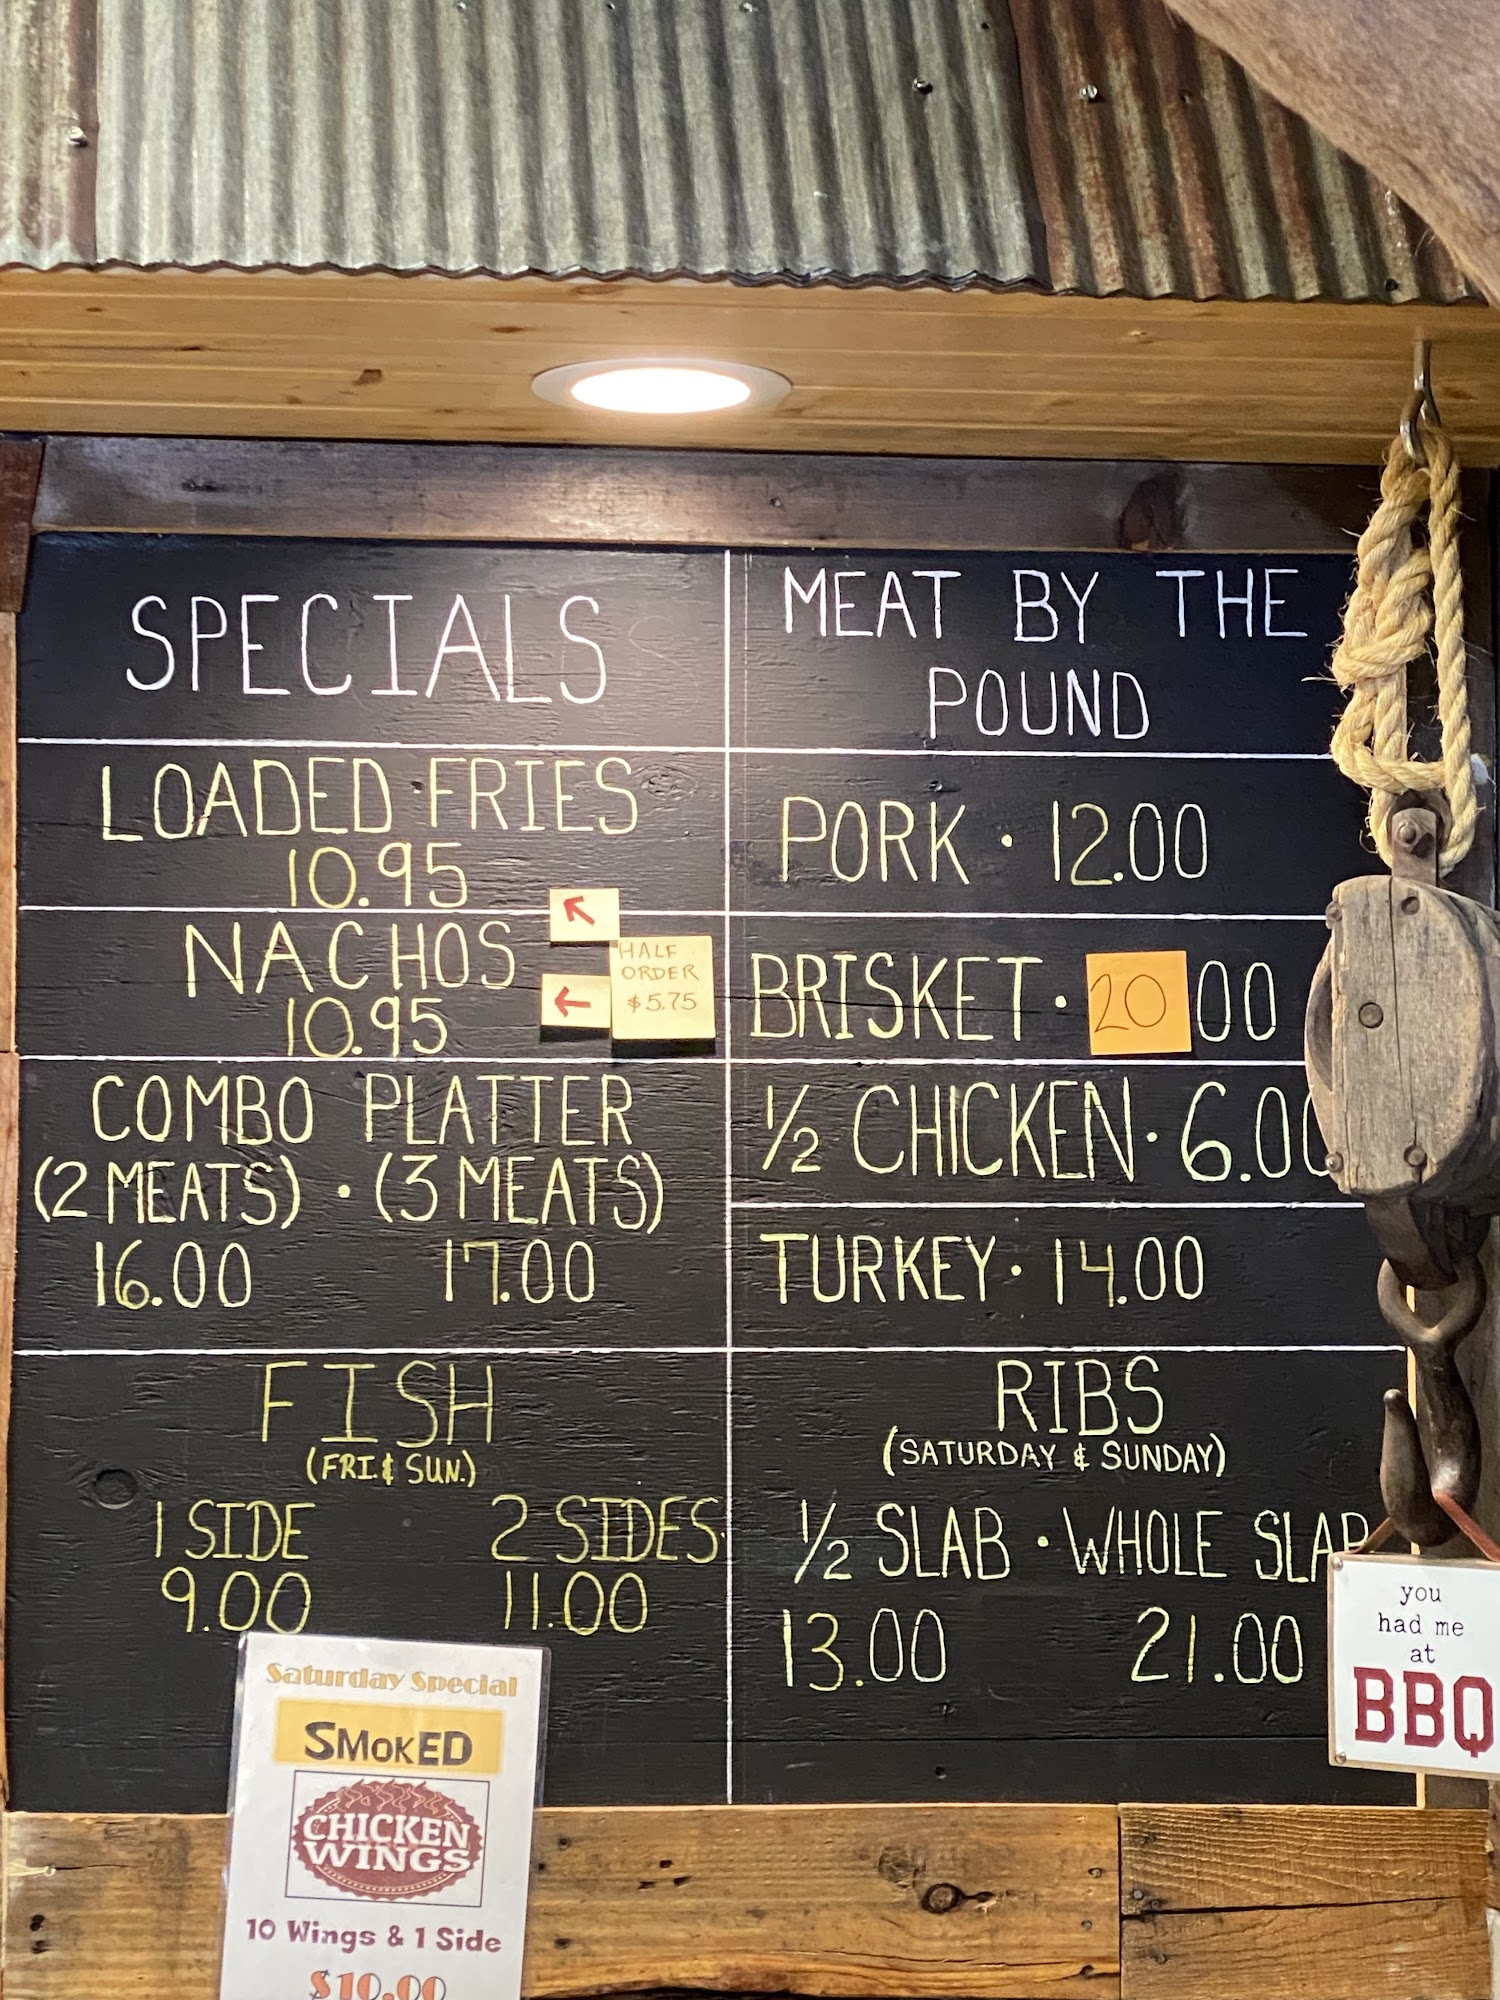 SPECIALS
LOADED FRIES
10.95
NACHOS
10.95
HALF
ORDER
$5.75
COMBO PLATTER
(2 MEATS) • (3 MEATS)
16.00 17.00
FISH
(FRI. & SUN.)
1 SIDE 2 SIDES
9.00 11.00
MEAT BY THE
POUND
PORK • 12.00
BRISKET • 20 00
1/2 CHICKEN • 6.00
TURKEY • 14.00
RIBS
(SATURDAY & SUNDAY)
1/2 SLAB • WHOLE SLAB
13.00 21.00
Saturday Special
SMOKED
CHICKEN
WINGS
10 Wings & 1 Side
$10.00
you
had me
at
BBQ